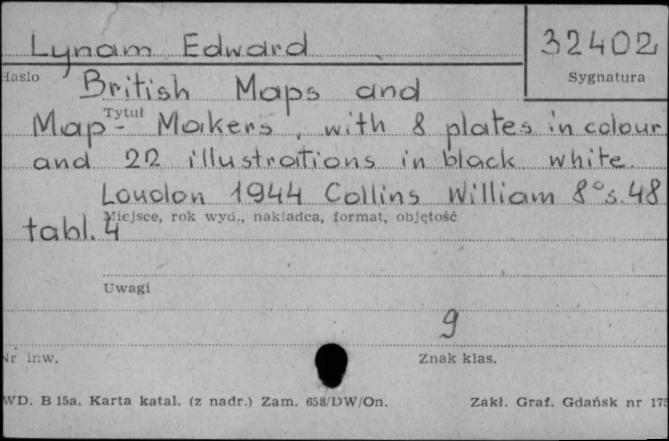 Lynam Edward
32402
Hasło
Sygnatura
British Maps and
Tytuł
Map- Makers, with 8 plates in colour
and 22 illustrations in black white.
London 1944 Collins William 8° s. 48
Miejsce, rok wyd., nakładca, format, objętość
tabl. 4
Uwagi
9
Nr inw.
Znak klas.
WD. B 15a. Karta katal. (z nadr.) Zam. 658/DW/On.
Zakł. Graf. Gdańsk nr 175